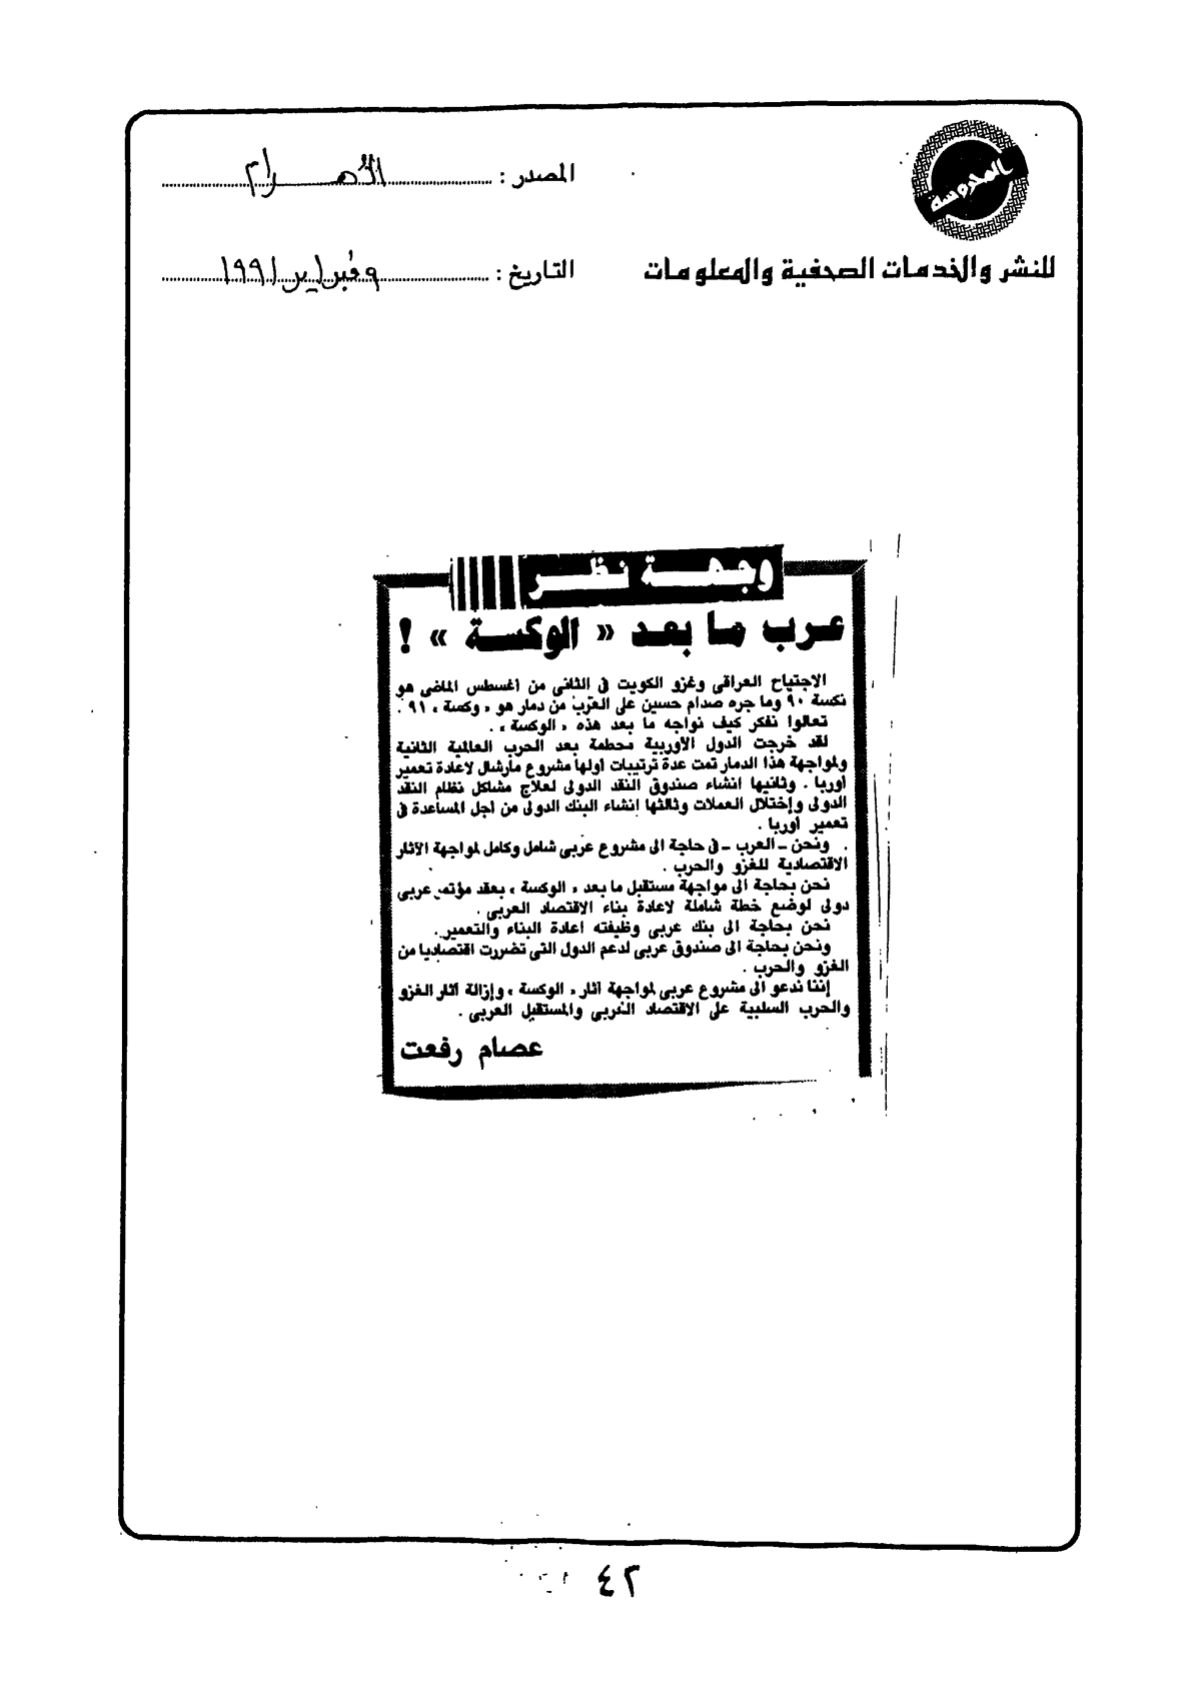 المحروسة
للنشر والخدمات الصحفية والمعلومات
المصدر : الأهرام
التاريخ : ٩ فبراير ١٩٩١
وجهة نظر
عرب ما بعد « الوكسة » !
الاجتياح العراقى وغزو الكويت فى الثانى من أغسطس الماضى هو
نكسة ٩٠ وما جره صدام حسين على العرب من دمار هو « وكسة » ٩١ .
تعالوا نفكر كيف نواجه ما بعد هذه « الوكسة » .
لقد خرجت الدول الأوربية محطمة بعد الحرب العالمية الثانية
ولمواجهة هذا الدمار تمت عدة ترتيبات اولها مشروع مارشال لاعادة تعمير
اوربا . وثانيها انشاء صندوق النقد الدولى لعلاج مشاكل نظام النقد
الدولى وإختلال العملات وثالثها إنشاء البنك الدولى من اجل المساعدة فى
تعمير اوربا .
ونحن ـ العرب ـ فى حاجة الى مشروع عربى شامل وكامل لمواجهة الآثار
الاقتصادية للغزو والحرب .
نحن بحاجة الى مواجهة مستقبل ما بعد « الوكسة » بعقد مؤتمر عربى
دولى لوضع خطة شاملة لاعادة بناء الاقتصاد العربى .
نحن بحاجة الى بنك عربى وظيفته اعادة البناء والتعمير .
ونحن بحاجة الى صندوق عربى لدعم الدول التى تضررت اقتصاديا من
الغزو والحرب .
إننا ندعو الى مشروع عربى لمواجهة آثار « الوكسة » وإزالة آثار الغزو
والحرب السلبية على الاقتصاد العربى والمستقبل العربى .
عصام رفعت
٤٢